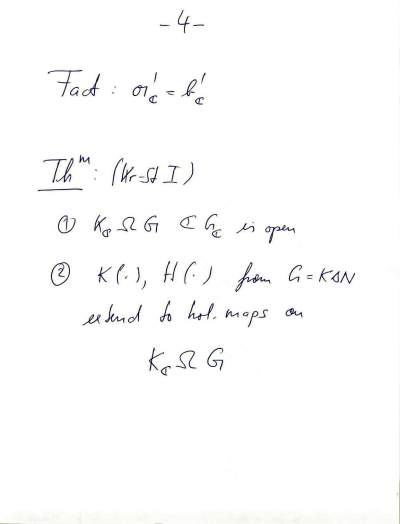 - 4 -
Fact : 𝔞'_ℂ = 𝔟'_ℂ
Th^m: (Kr-St I)
① K_ℂ Ω G ⊂ G_ℂ is open
② K(·), H(·) from G = KAN
extend to hol. maps on
K_ℂ Ω G